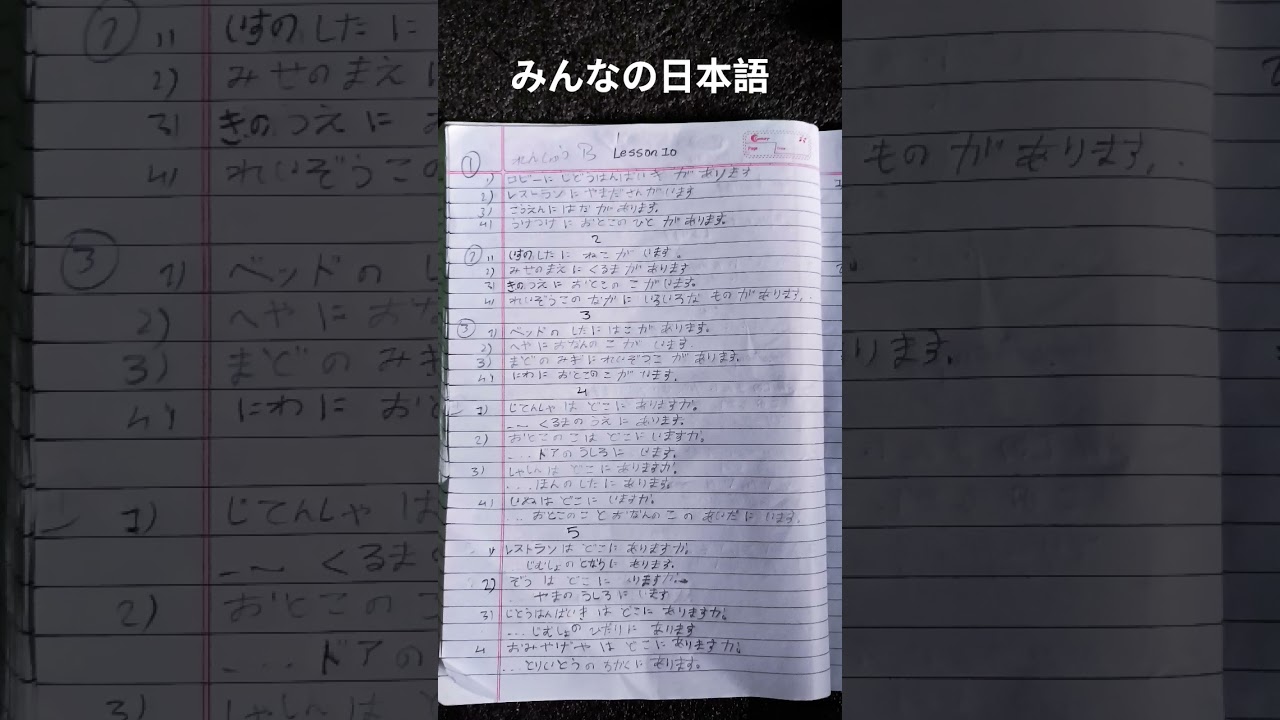 みんなの日本語
れんしゅう B Lesson 10
1
① 1) ロビーに じどうはんばいき が あります
2) レストラン に やまださんがいます
3) こうえんに はな が あります。
4) うけつけ に おとこの ひと が あります。
2
② 1) いすの した に ねこ が います。
2) みせのまえ に くるま が あります
3) きのつえ に おとこの こ が います。
4) れいぞうこの なかに いろいろな もの が あります。
3
③ 1) ベッド の した に はこ が あります。
2) へや に おなんの こ が います.
3) まど の みぎ に れいぞつこ が あります.
4) にわ に おとこの こ が います.
4
1) じてんしゃ は どこ に ありますか。
_ _ ~ くるま の うえ に あります.
2) おとこの こ は どこ に いますか。
.... ドア の うしろ に います.
3) しゃしへ は どこ に ありますか.
.... ほんの した に あります.
4) いぬ は どこ に いますか.
... おとこのこ と おなんの こ の あいだ に います.
5
1) レストラン は どこに ありますか.
.. じむしょの となりに あります.
2) ぞう は どこ に
やまの うしろ に います
3) じどうはんばいき は どこに ありますか.
... じむしょの ひだりに あります
4 おみやげや は どこ に ありますか.
...とりいどうの ちかくに あります.